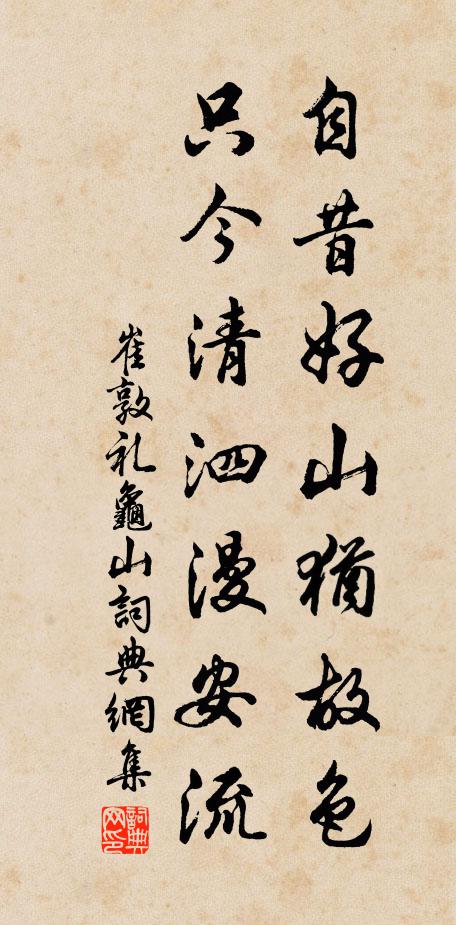 自昔好山猶故色
只今清泗漫安流
崔敦礼龜山詞典網集
詞典网印